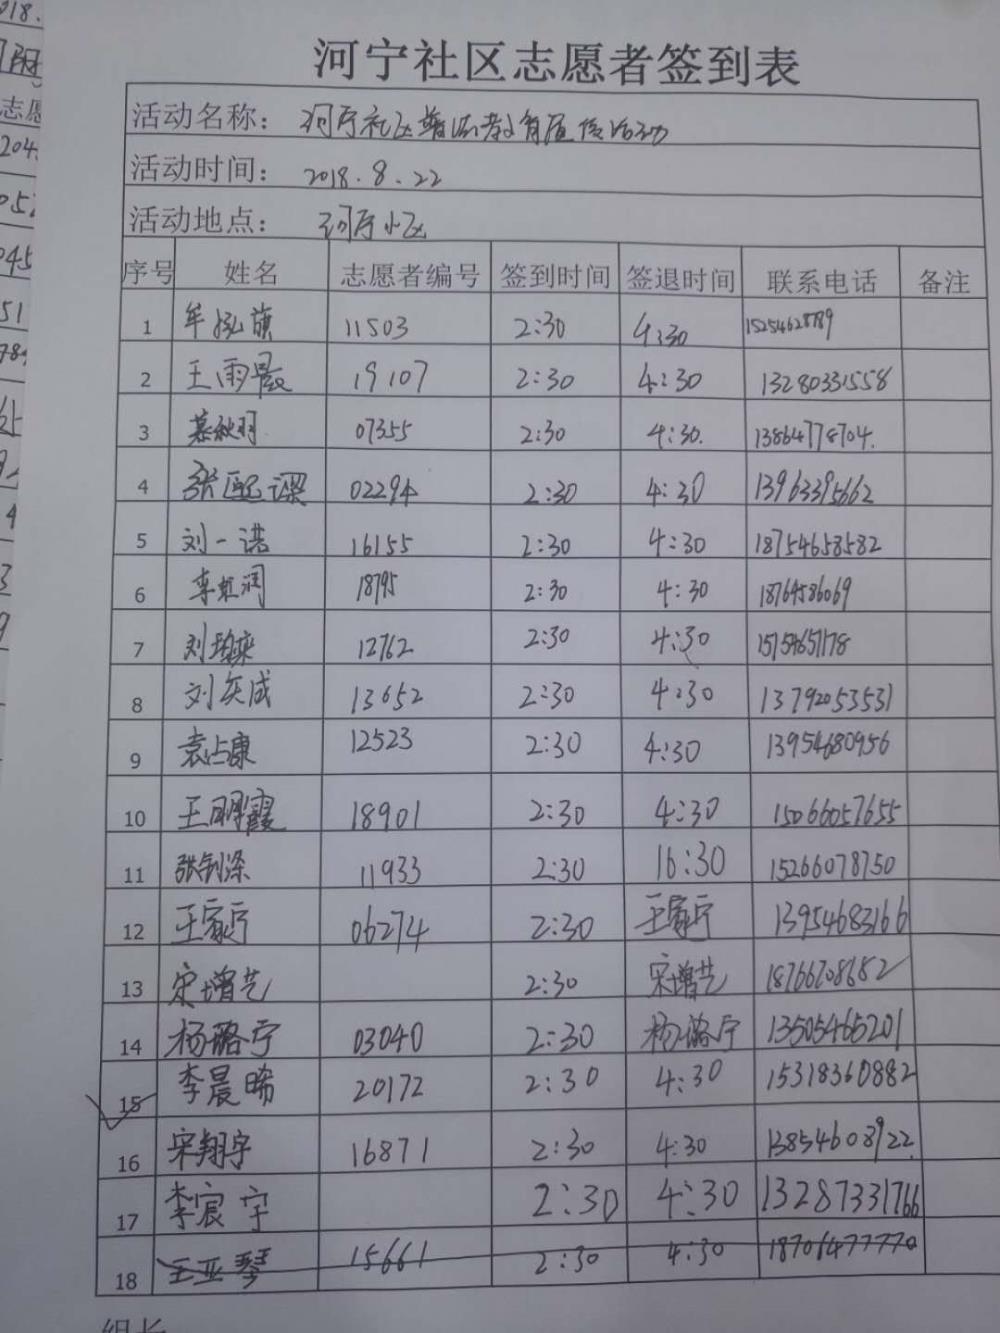 河宁社区志愿者签到表
活动名称: 河宁社区 教育宣传活动
活动时间: 2018.8.22
活动地点: 河宁小区
序号 姓名 志愿者编号 签到时间 签退时间 联系电话 备注
1 牟泓旗 11503 2:30 4:30 15254628789
2 王雨晨 19107 2:30 4:30 13280331558
3 慕秋羽 07355 2:30 4:30. 13864778704.
4 张配谋 02294 2:30 4:30 13963395662
5 刘一诺 16155 2:30 4:30 18754658582
6 李虹润 18795 2:30 4:30 18764586069
7 刘 12762 2:30 4:30 15754651178
8 刘奕成 13652 2:30 4:30 13792053531
9 袁占康 12523 2:30 4:30 13954680956
10 王明霞 18901 2:30 4:30 15066057655
11 张钊涤 11933 2:30 16:30 15266078750
12 王家宁 06274 2:30 王家宁 13954683166
13 宋增艺 2:30 宋增艺 18766708682
14 杨璐宁 03040 2:30 杨璐宁 13505465201
15 李晨晞 20172 2:30 4:30 15318360882
16 宋翔宇 16871 2:30 4:30 13854608922.
17 李宸宇 2:30 4:30 13287331766
18 王亚琴 15661 2:30 4:30 18706477770
组长